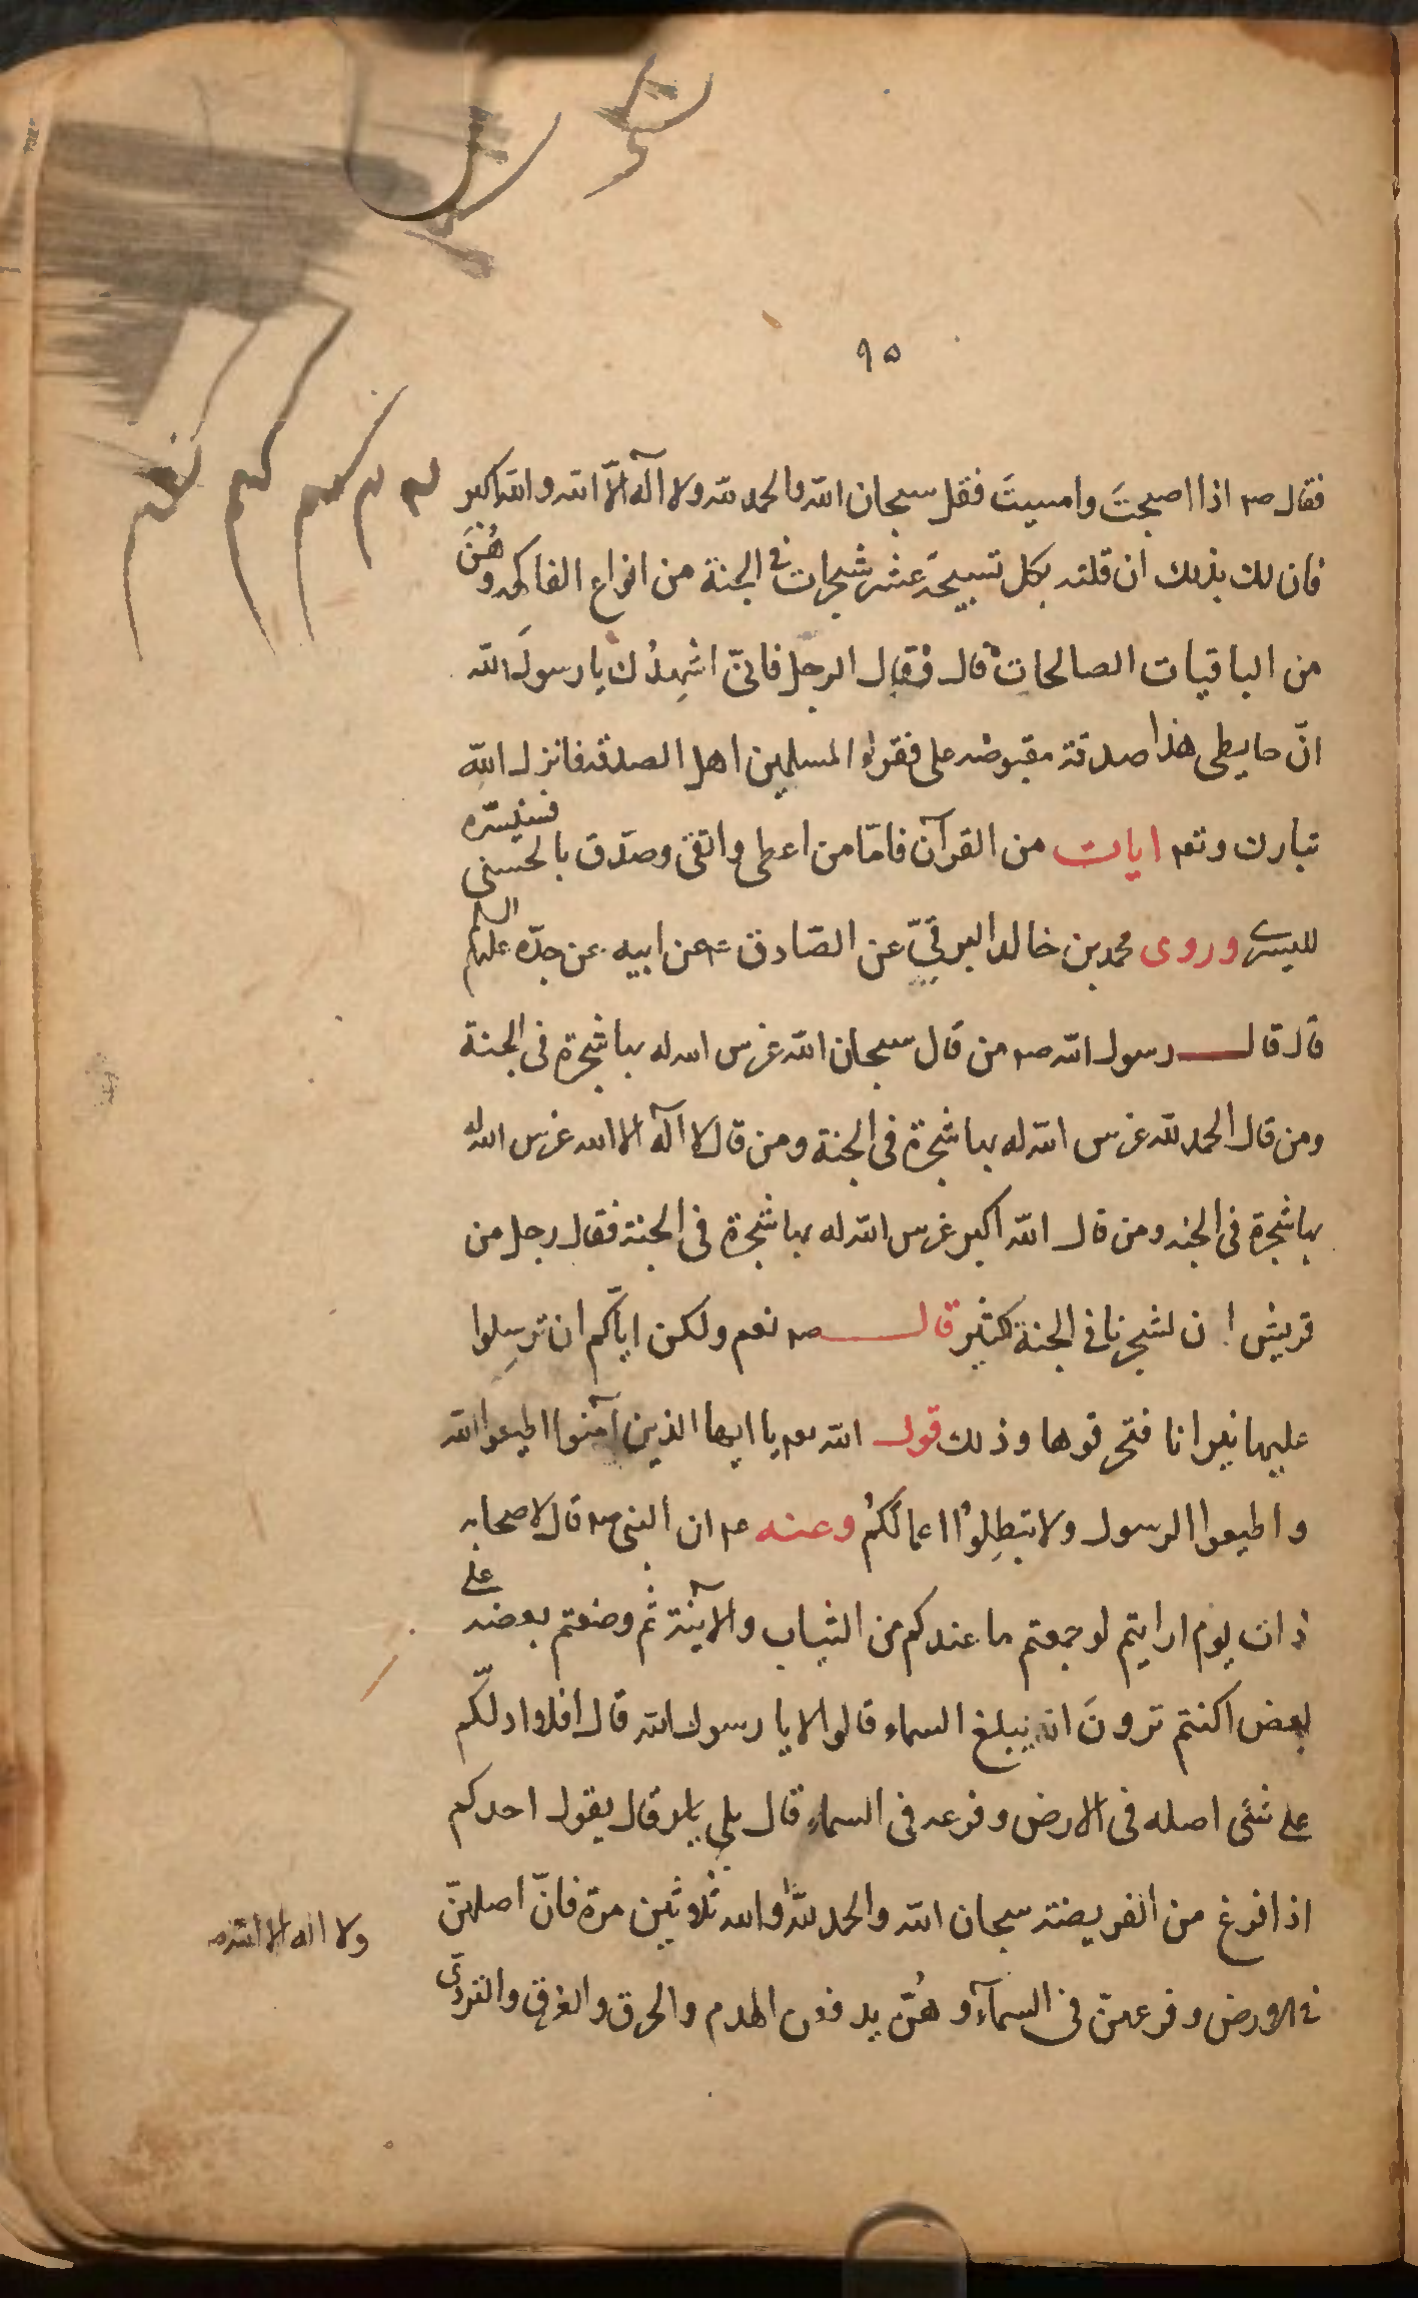 ٩٥
فقال صم اذا اصبحتَ وامسيتَ فقل سبحان الله والحمد لله ولا اله الّا الله والله اكبر
فان لك بذلك ان قلته بكل تسبيحة عشر شجرات فى الجنة من انواع الفاكهة وهُنَّ
من الباقيات الصالحات قال فقال الرجل فانّى اشهِدُك يا رسولَ الله
انّ حايطى هذا صدقة مقبوضه على فقراء المسلمين اهل الصدقه فانزل الله
تبارك وتعم ايات من القرآن فامّا من اعطى واتقى وصدّق بالحسنى فسنيسّره
لليسرى وروى محمد بن خالد البرقيّ عن الصّادق عم عن ابيه عن جدّه عليهم السلم
قال قال رسول الله صم من قال سبحان الله غرس الله له بها شجرة فى الجنة
ومن قال الحمد لله غرس الله له بها شجرة فى الجنة ومن قال لا اله الا الله غرس الله له
بها شجرة فى الجنه ومن قال الله اكبر غرس الله له بها شجرة فى الجنة فقال رجل من
قريش ان لشجرنا فى الجنة كثير قال صم نعم ولكن ايّاكم ان ترسِلوا
عليها نيرانا فتحرقوها وذلك قول الله تعم يا ايها الذين آمنوا اطيعوا الله
واطيعوا الرسول ولا تبطِلوُا اعمالَكُم وعنه عم ان النبى صم قال لاصحابه
ذات يوم ارايتم لو جمعتم ما عندكم من الثياب والآنية ثم وضعتم بعضه على
بعض اكنتم ترونَ انه يبلغ السماء قالوا لا يا رسول الله قال افلا ادلّكم
على شئ اصله فى الارض وفرعه فى السماء قال بلى قال يقول احدكم
اذا فرغ من الفريضة سبحان الله والحمد لله والله ثلاثين مرة فانّ اصلهنّ
ولا اله الا الله
فى الارض وفرعهنّ فى السمآء وهُنّ يدفعن الهدم والحرق والغرق والتردّى